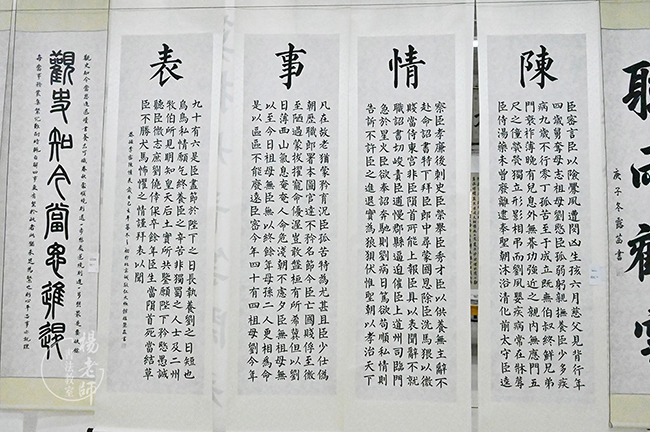 庚子冬
陳
臣密言臣以險釁夙遭閔凶生孩六月慈父見背行年
四歲舅奪母志祖母劉愍臣孤弱躬親撫養臣少多疾
病九歲不行零丁孤苦至于成立既無伯叔終鮮兄弟
門衰祚薄晚有兒息外無朞功強近之親內無應門五
尺之僮煢煢獨立形影相弔而劉夙嬰疾病常在牀蓐
臣侍湯藥未曾廢離逮奉聖朝沐浴清化前太守臣逵
情
察臣孝廉後刺史臣榮舉臣秀才臣以供養無主辭不
赴命詔書特下拜臣郎中尋蒙國恩除臣洗馬猥以微
賤當侍東宮非臣隕首所能上報臣具以表聞辭不就
職詔書切峻責臣逋慢郡縣逼迫催臣上道州司臨門
急於星火臣欲奉詔奔馳則劉病日篤欲苟順私情則
告訴不許臣之進退實為狼狽伏惟聖朝以孝治天下
事
凡在故老猶蒙矜育況臣孤苦特為尤甚且臣少仕偽
朝歷職郎署本圖宦達不矜名節今臣亡國賤俘至微
至陋過蒙拔擢寵命優渥豈敢盤桓有所希冀但以劉
日薄西山氣息奄奄人命危淺朝不慮夕臣無祖母無
以至今日祖母無臣無以終餘年母孫二人更相為命
是以區區不能廢遠臣密今年四十有四祖母劉今年
表
九十有六是臣盡節於陛下之日長報養劉之日短也
烏鳥私情願乞終養臣之辛苦非獨蜀之人士及二州
牧伯所見明知皇天后土實所共鑒願陛下矜愍愚誠
聽臣微志庶劉僥倖保卒餘年臣生當隕首死當結草
臣不勝犬馬怖懼之情謹拜表以聞
觀史知今當思進退
楊老師
書法教室